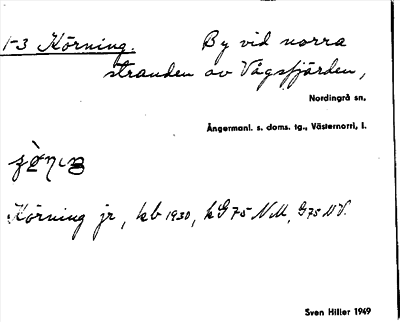 1-3 Körning. By vid norra
stranden av Vågsfjärden,
Nordingrå sn.
Ångermanl. s. doms. tg., Västernorrl, l.
Körning jr, kb 1930, kG 75 NM, G75 NV.
Sven Hiller 1949